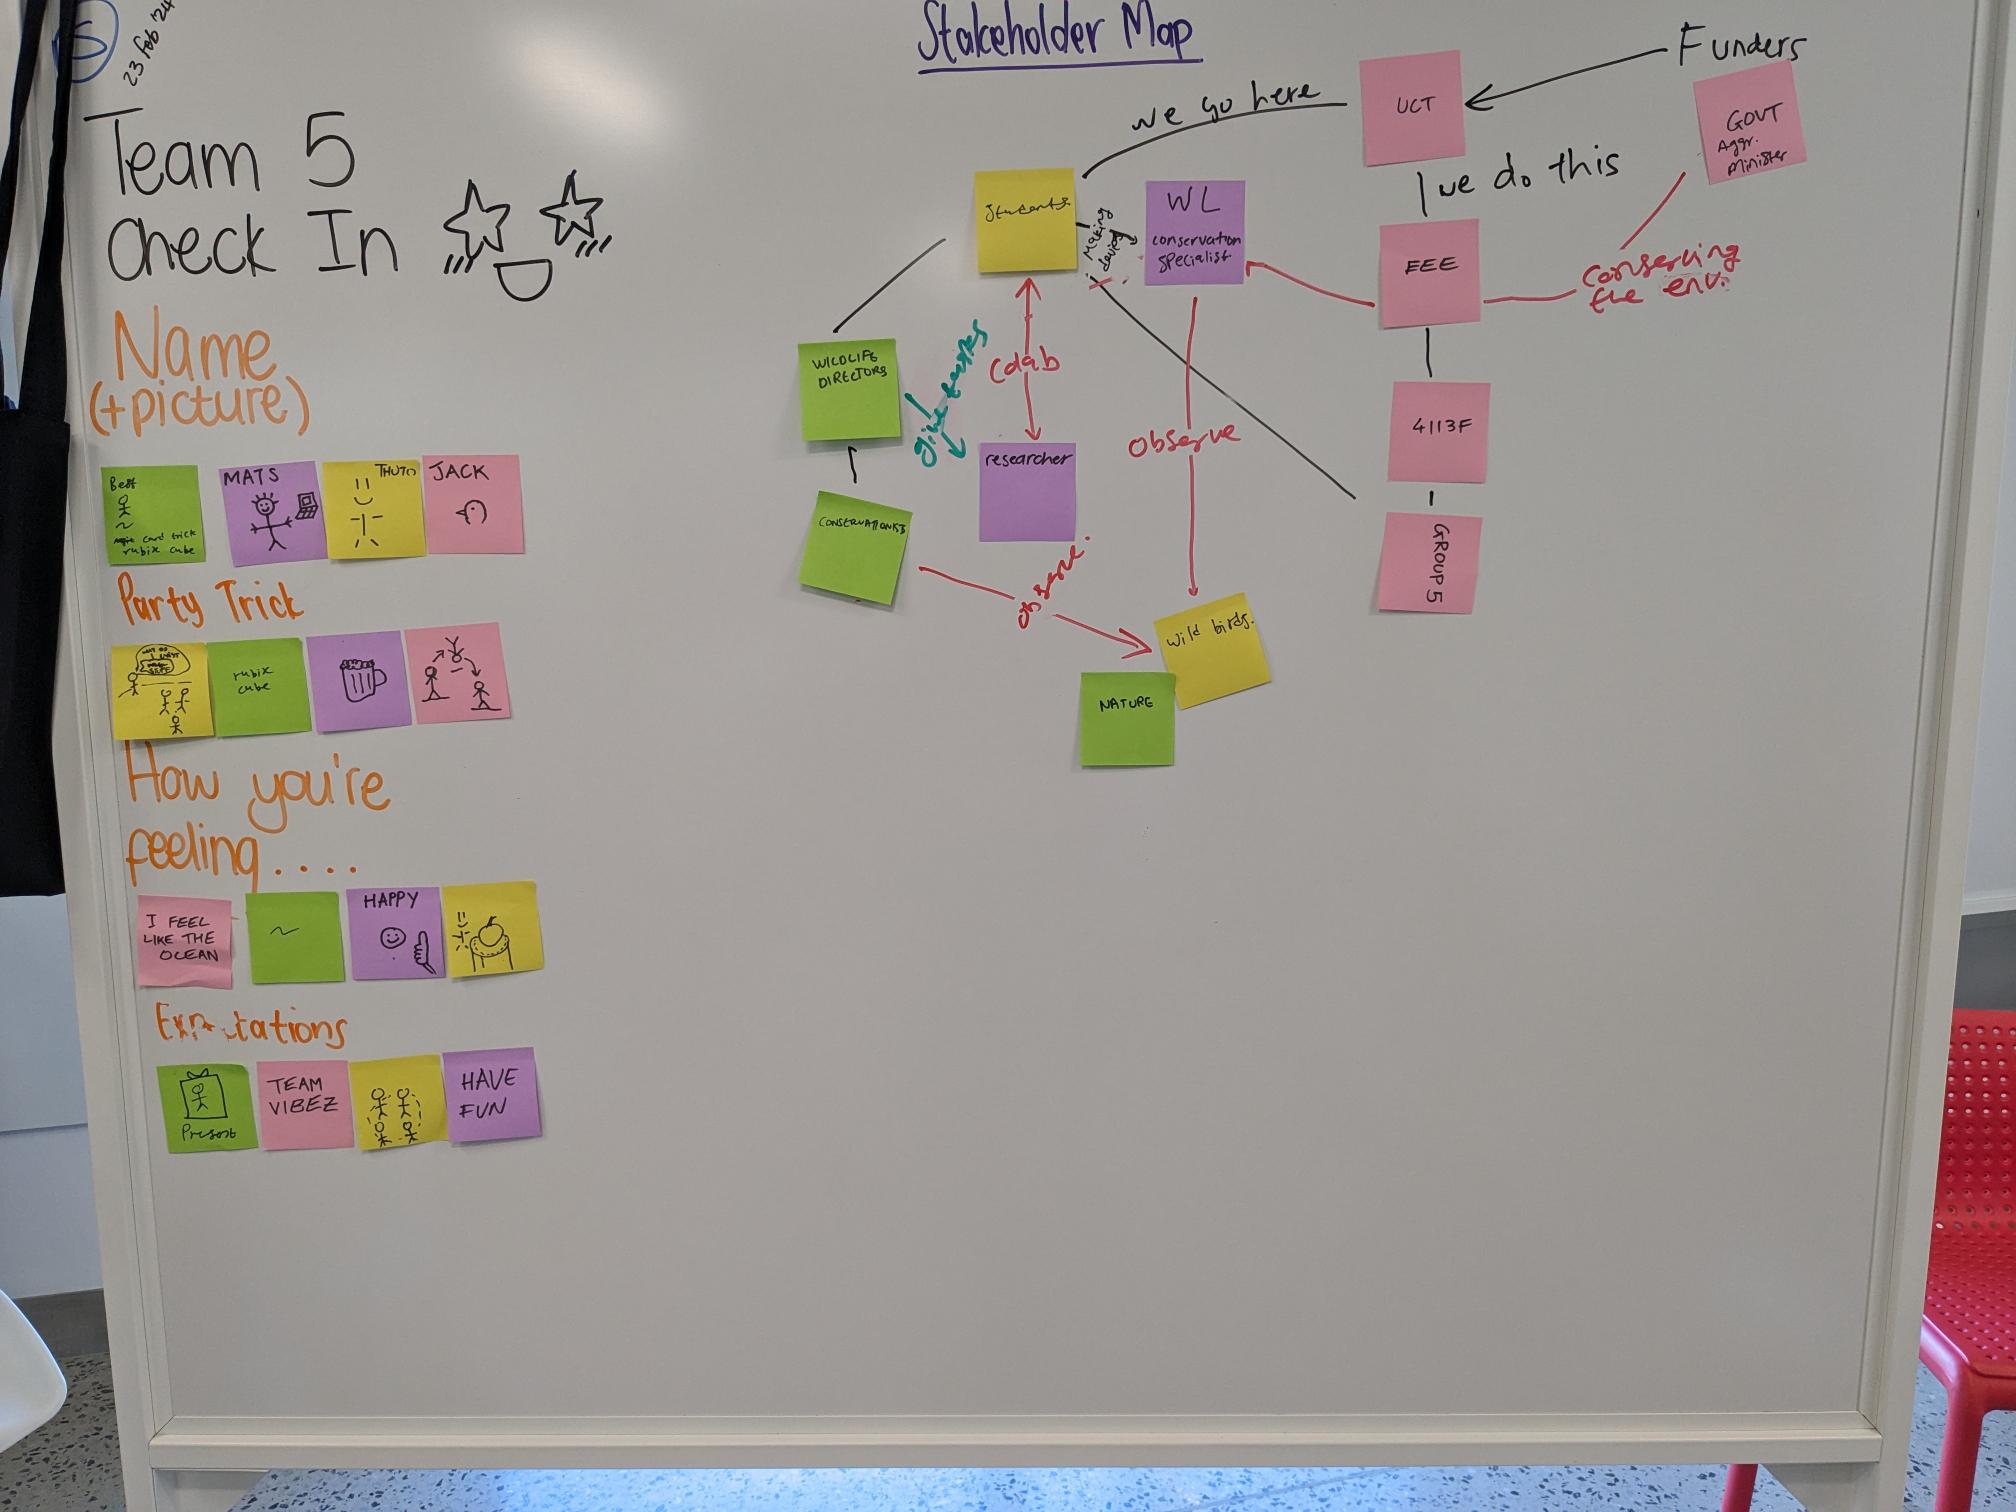 5
23 Feb '24
Team 5
Check In
Name
(+picture)
Best
card trick
rubix cube
MATS
THUTO
JACK
Party Trick
rubix
cube
How you're
feeling....
I FEEL
LIKE THE
OCEAN
~
HAPPY
Present
TEAM
VIBEZ
HAVE
FUN
Stakeholder Map
Funders
UCT
GOVT
Agr.
Minister
we go here
we do this
Students
Making
device
WL
conservation
specialist.
EEE
conserving
the env.
WILDLIFE
DIRECTORS
give tasks
Colab
observe
4113F
researcher
CONSERVATIONISTS
GROUP 5
observe.
wild birds.
NATURE